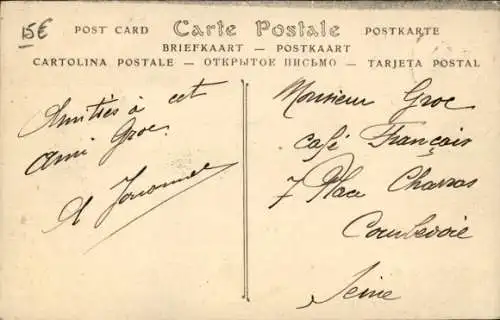 15€
POST CARD Carte Postale POSTKARTE
BRIEFKAART — POSTKAART
CARTOLINA POSTALE — ОТКРЫТОЕ ПИСЬМО — TARJETA POSTAL
Amitiés à cet
Ami Groc
A Jouannel
Monsieur Groc
Café Français
7 Place Charras
Courbevoie
Seine